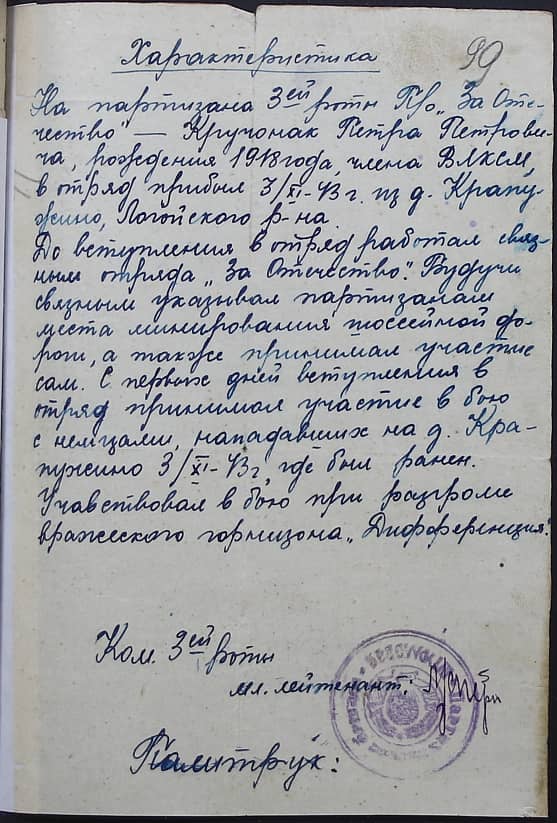 Характеристика
99
На партизана 3ей роты П/о „За Оте-
чество" — Кручонак Петра Петрови-
ча, рождения 1918 года, члена ВЛКСМ
в отряд прибыл 3/XI-43 г. из д. Крапу-
жино, Логойского р-на.
До вступления в отряд работал связ-
ным отряда „За Отечество". Будучи
связным указывал партизанам
места минирования шоссейной до-
роги, а также принимал участие
сам. С первых дней вступления в
отряд принимал участие в бою
с немцами, нападавших на д. Кра-
пужино 3/XI-43 г, где был ранен.
Учавствовал в бою при разгроме
вражеского горнизона „Дифференция.
Ком. 3ей роты
мл. лейтенант:
Палитрук: